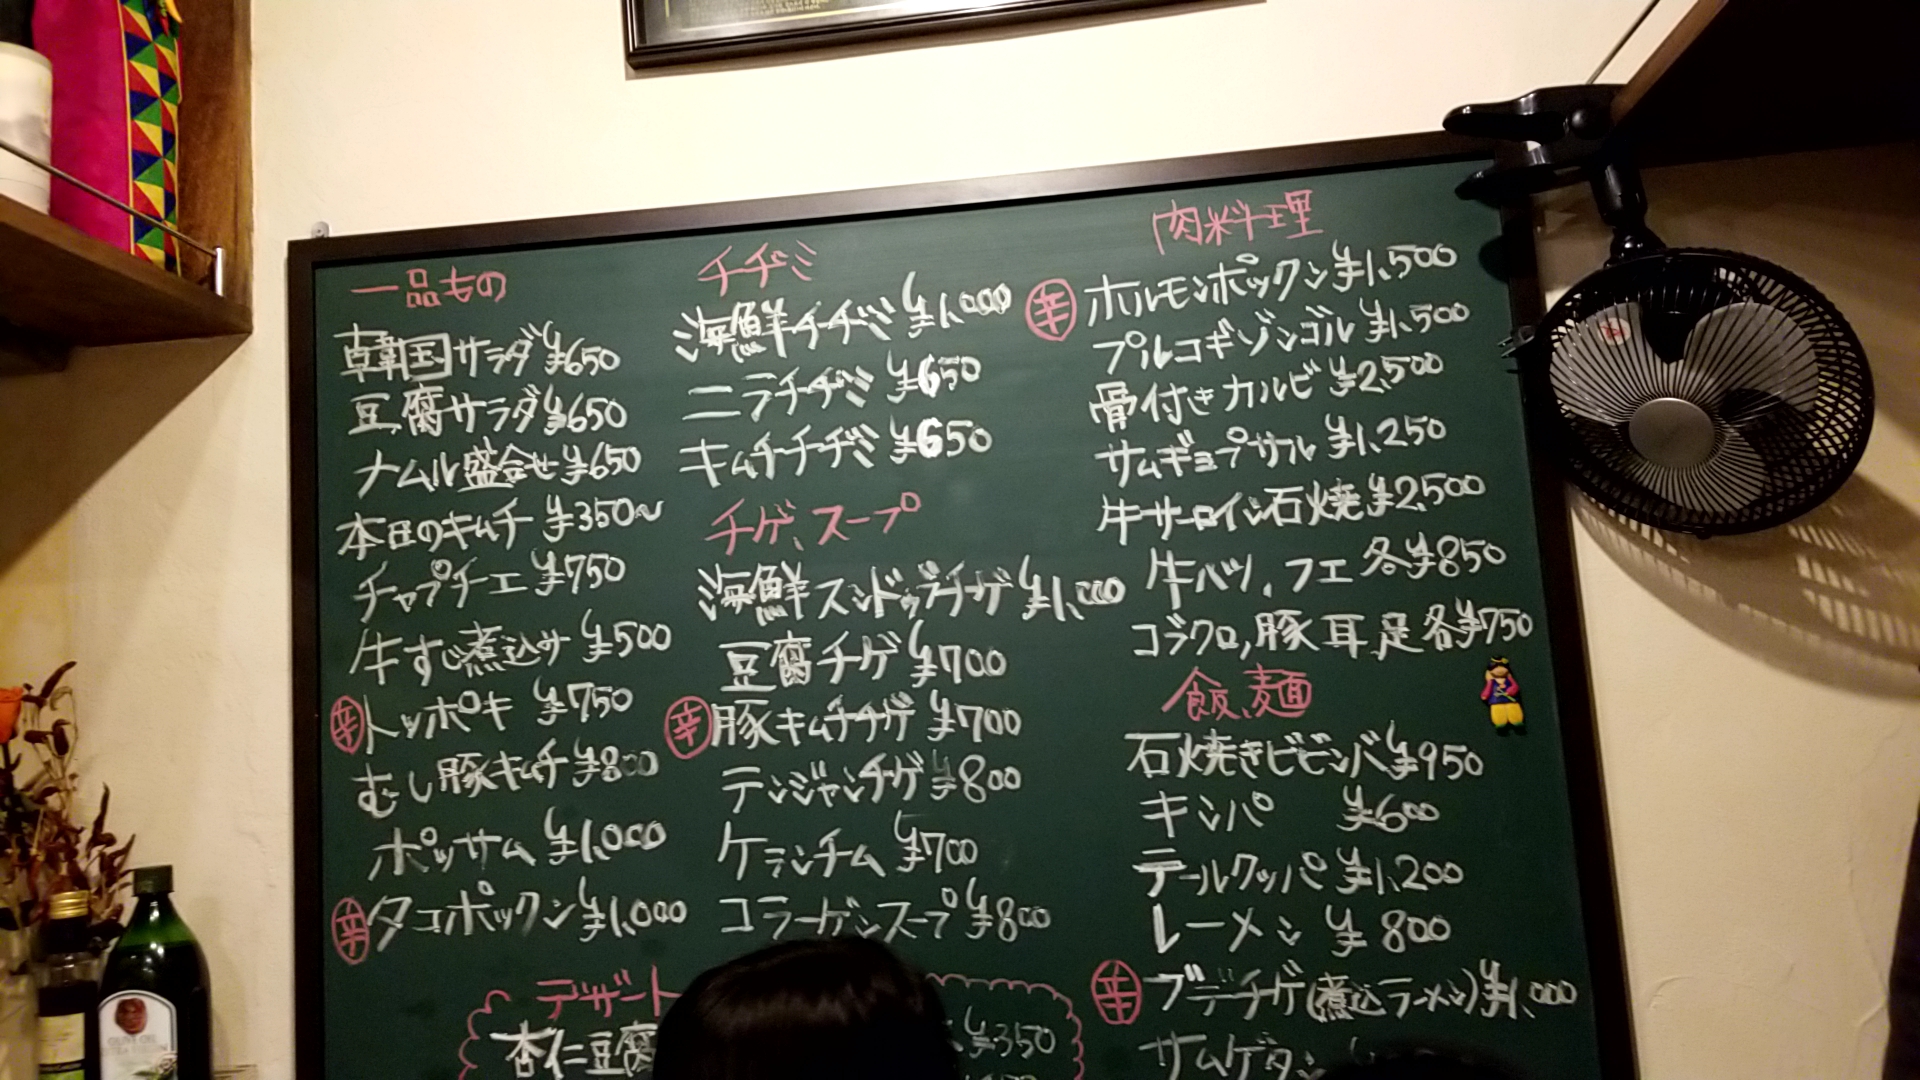 一品もの
韓国サラダ ¥650
豆腐サラダ ¥650
ナムル盛合せ ¥650
本日のキムチ ¥350〜
チャプチェ ¥750
牛すじ煮込み ¥500
辛 トッポキ ¥750
むし豚キムチ ¥800
ポッサム ¥1,000
辛 タコポックン ¥1,000
チヂミ
海鮮チヂミ ¥1,000
ニラチヂミ ¥650
キムチチヂミ ¥650
チゲ、スープ
海鮮スンドゥブチゲ ¥1,000
豆腐チゲ ¥700
辛 豚キムチチゲ ¥700
テンジャンチゲ ¥800
ケランチム ¥700
コラーゲンスープ ¥800
肉料理
辛 ホルモンポックン ¥1,500
プルコギゾンゴル ¥1,500
骨付きカルビ ¥2,500
サムギョプサル ¥1,250
牛サーロイン石焼 ¥2,500
牛ハツ、フエ 各¥850
コブクロ,豚耳,足 各¥750
飯、麺
石焼きビビンバ ¥950
キンパ ¥600
テールクッパ ¥1,200
レーメン ¥800
辛 プデチゲ(煮込ラーメン) ¥1,000
サムゲタン
デザート
杏仁豆腐
¥350
OLIVE OIL